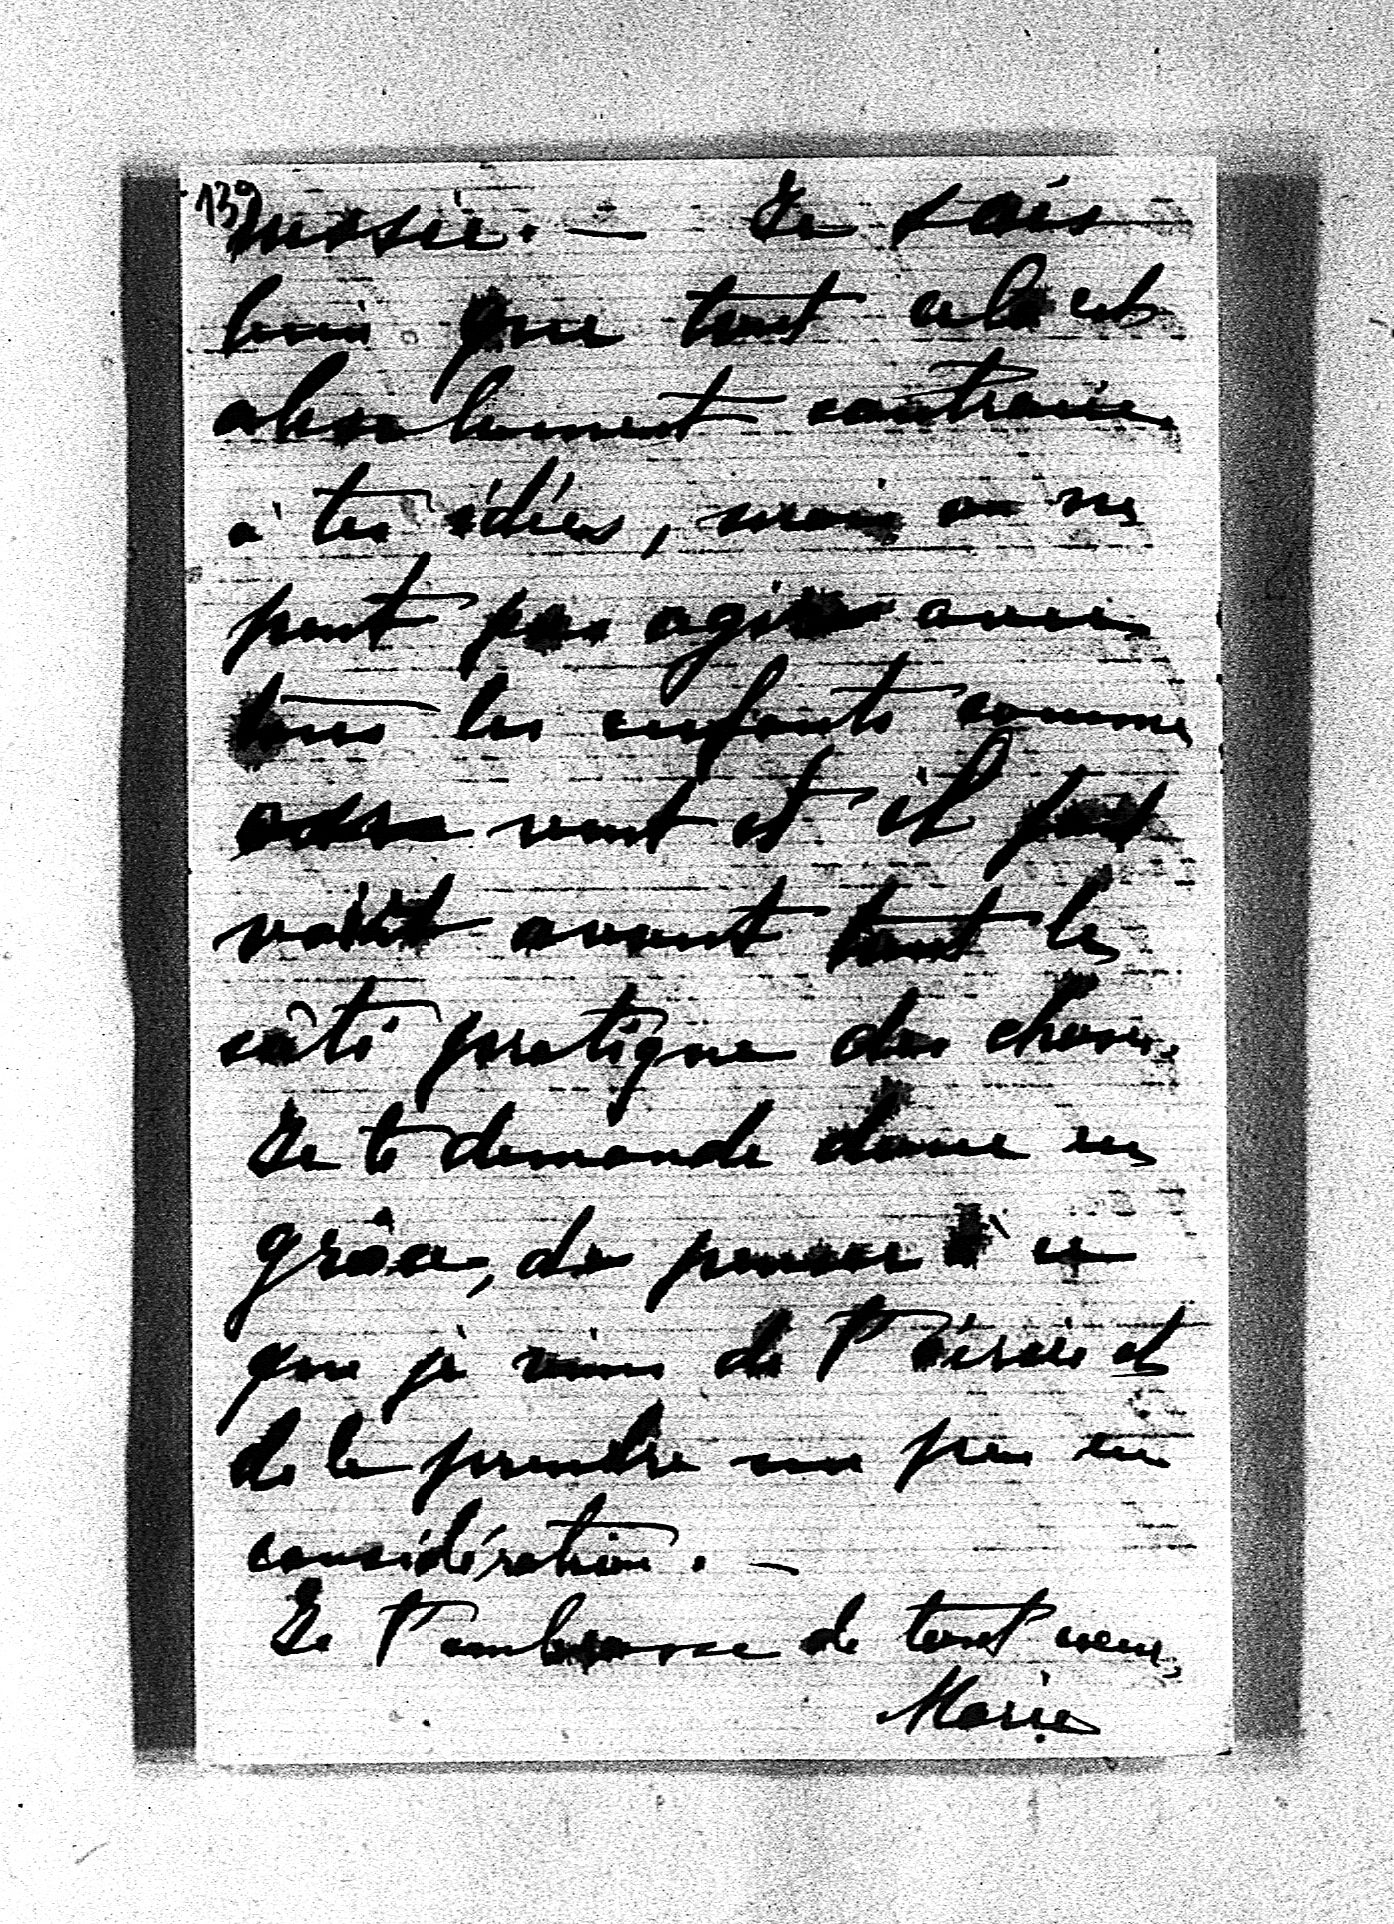 13°
Je sais
bien que tout cela est
absolument contraire
à tes idées, mais on ne
peut pas agir avec
tous les enfants comme
on veut et il faut
voir avant tout le
côté pratique des choses.
Je te demande donc en
grâce, de penser à ce
que je viens de t'écrire et
de le prendre un peu en
considération. —
Je t'embrasse de tout cœur,
Marie